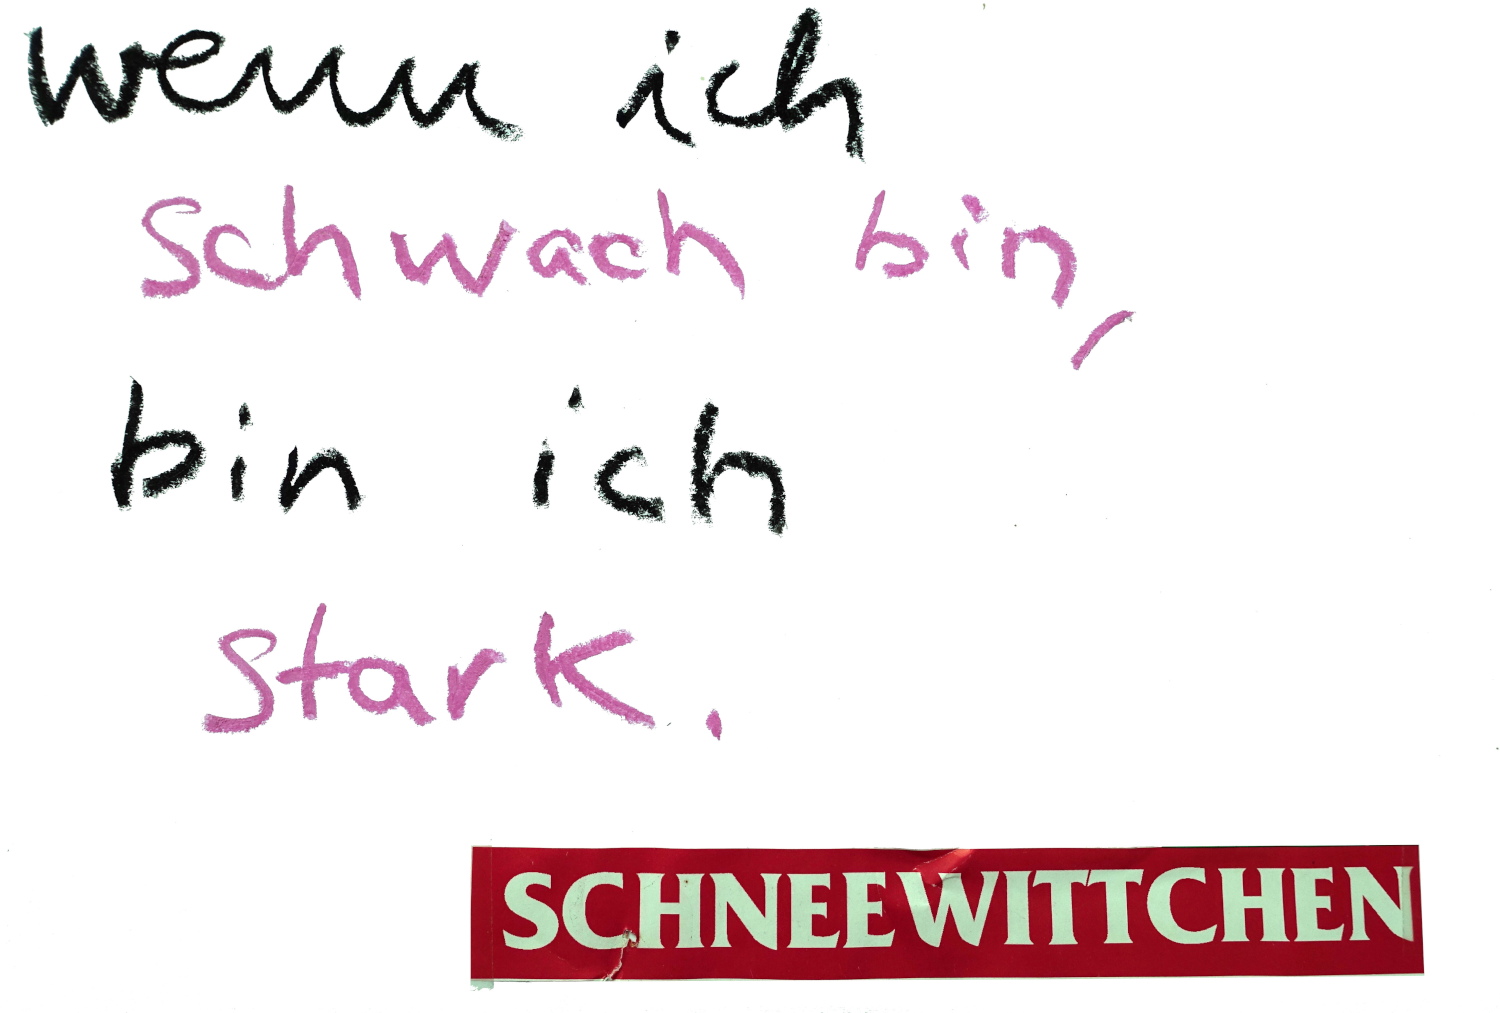 wenn ich
schwach bin,
bin ich
stark.
SCHNEEWITTCHEN